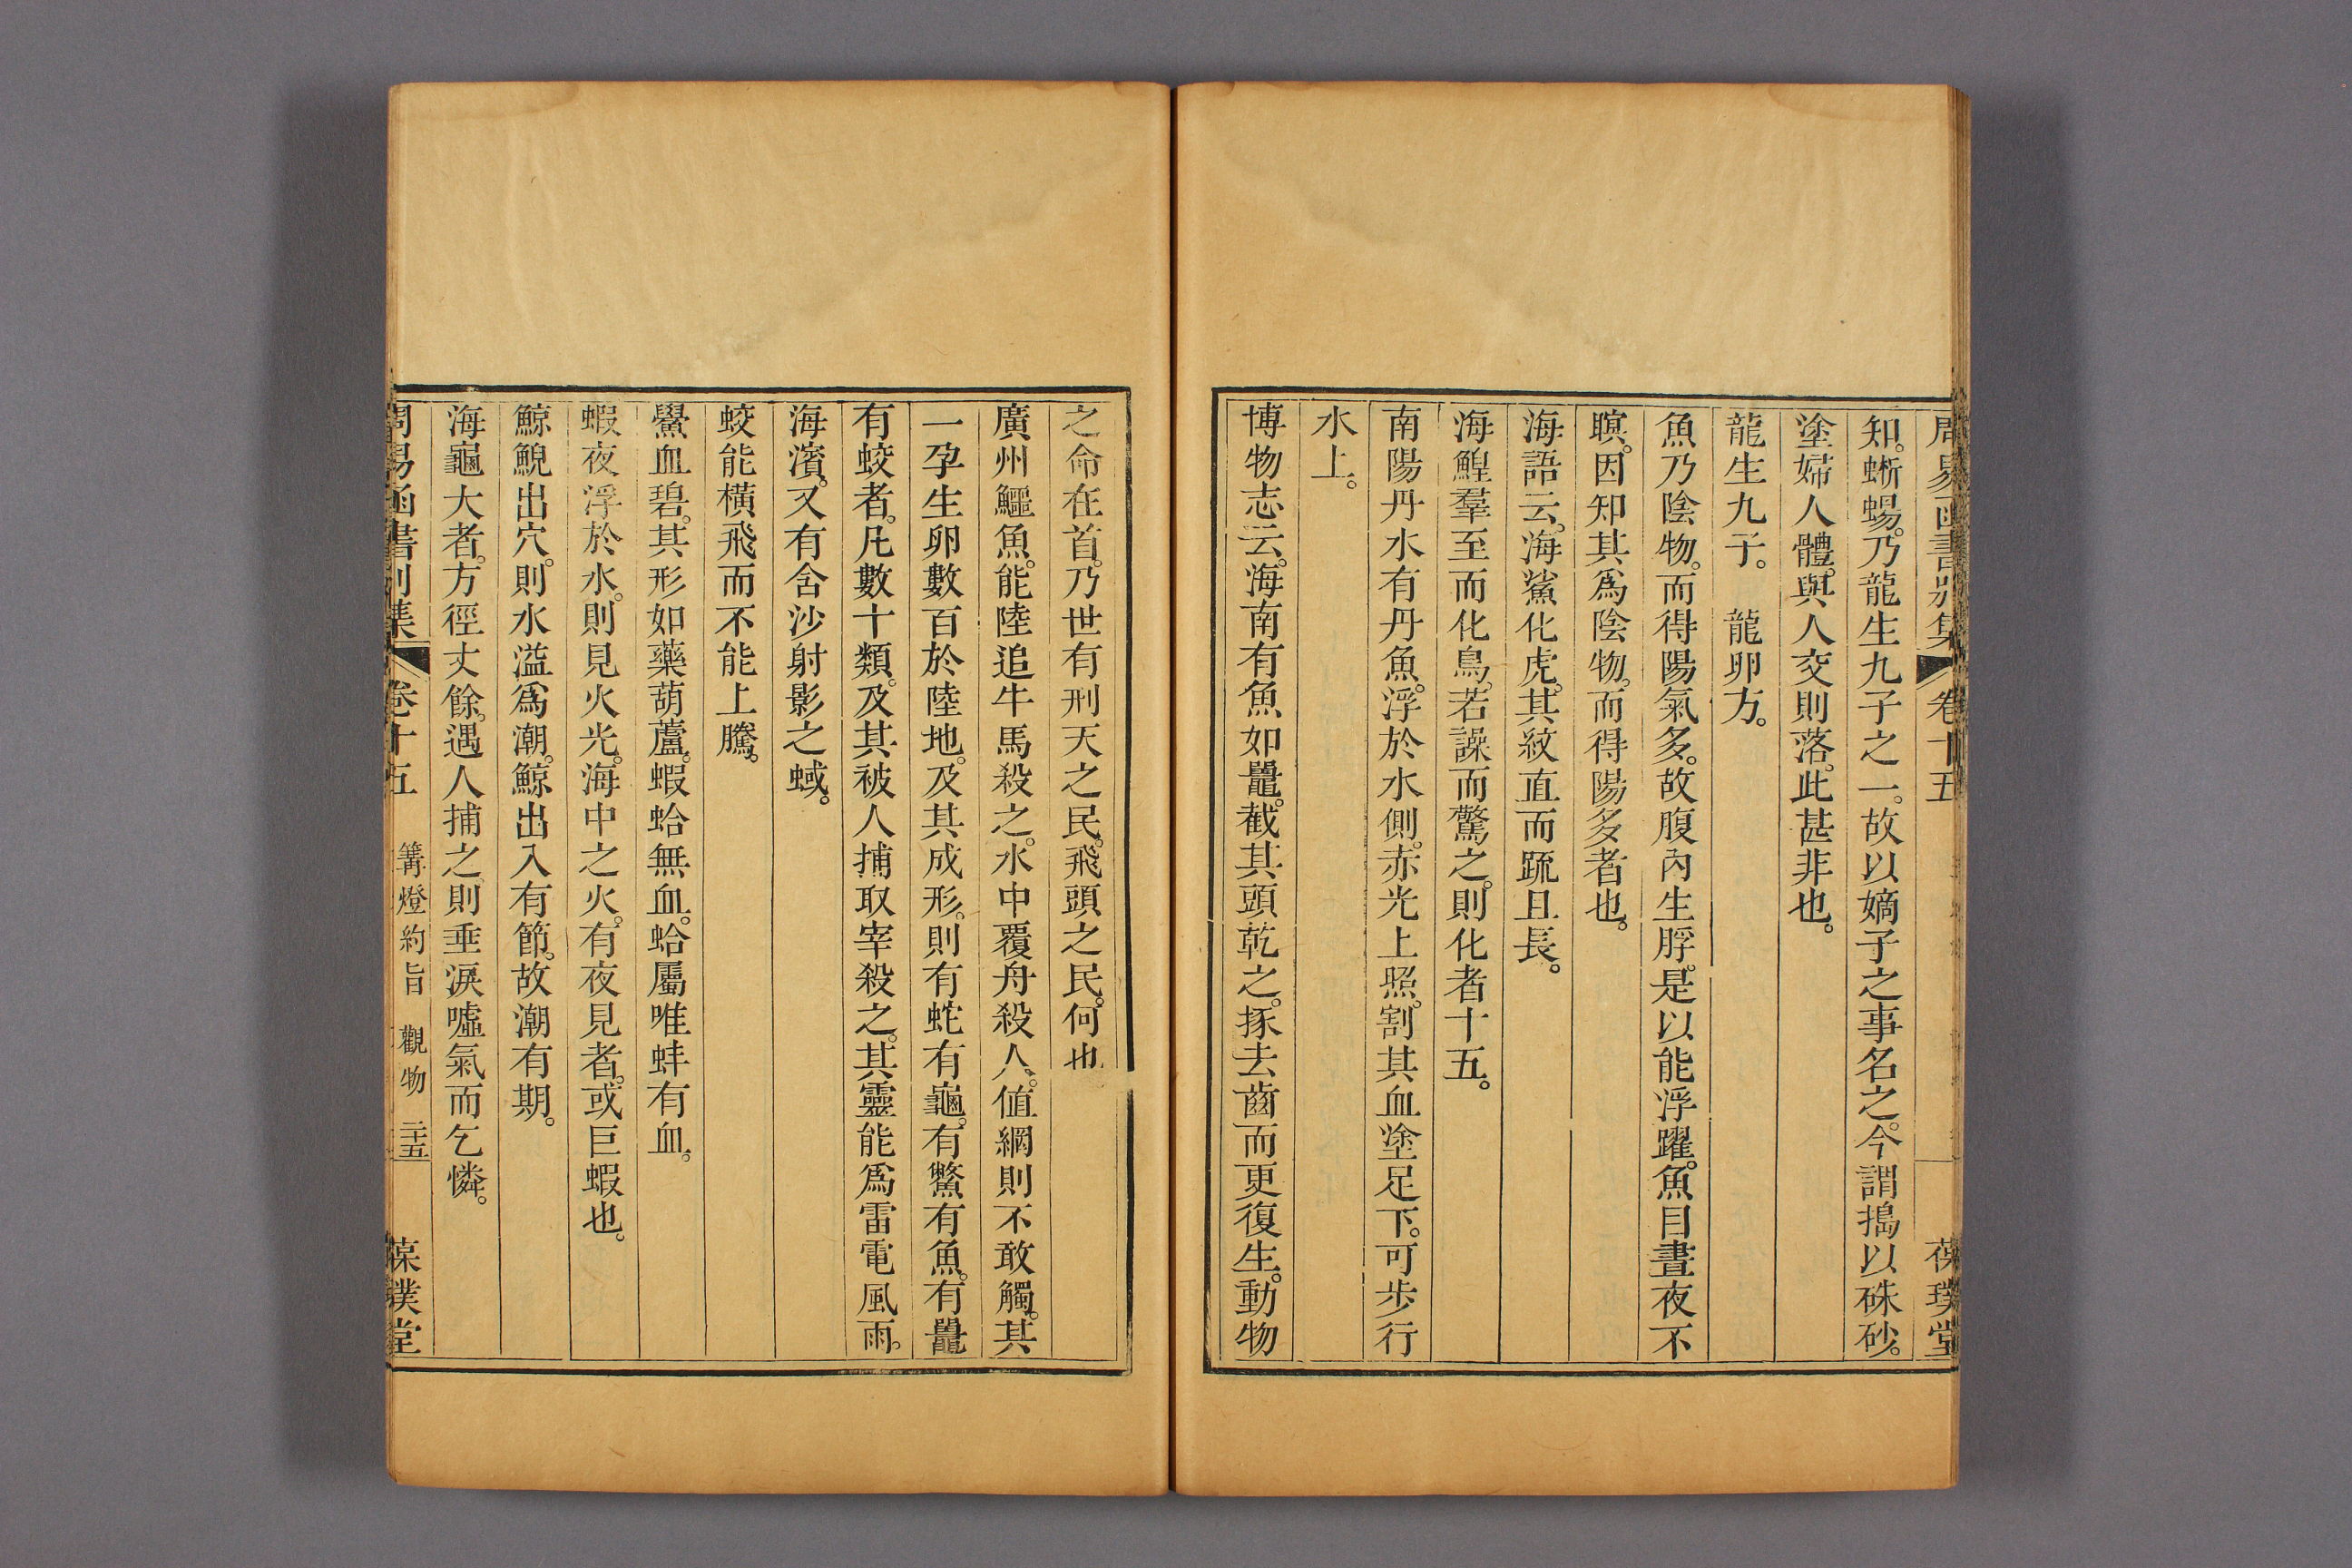 周易函書別集 卷十五 葆璞堂
知。蜥蜴。乃龍生九子之一。故以嫡子之事名之。今謂搗以硃砂。
塗婦人體。與人交則落。此甚非也。
龍生九子。 龍卵方。
魚乃陰物。而得陽氣多。故腹內生脬。是以能浮躍。魚目晝夜不
瞑。因知其爲陰物。而得陽多者也。
海語云。海鯊化虎。其紋直而疏且長。
海鰉羣至而化鳥。若譟而驚之。則化者十五。
南陽丹水有丹魚。浮於水側。赤光上照。割其血塗足下。可步行
水上。
博物志云。海南有魚如鼉。截其頭乾之。捴去齒而更復生。動物
之命在首。乃世有刑天之民。飛頭之民。何也
廣州鱷魚。能陸追牛馬殺之。水中覆舟殺人。値網則不敢觸。其
一孕生卵數百於陸地。及其成形。則有蛇有龜。有鱉有魚。有鼉
有蛟者。凡數十類。及其被人捕取宰殺之。其靈能爲雷電風雨。
海濱。又有含沙射影之蜮。
蛟能橫飛而不能上騰。
鱟血碧。其形如藥葫蘆。蝦蛤無血。蛤屬唯蚌有血。
蝦夜浮於水。則見火光。海中之火。有夜見者。或巨蝦也。
鯨鯢出穴。則水溢爲潮。鯨出入有節。故潮有期。
海龜大者。方徑丈餘。遇人捕之。則垂淚噓氣而乞憐。
周易函書別集 卷十五 篝燈約旨 觀物 二十五 葆璞堂